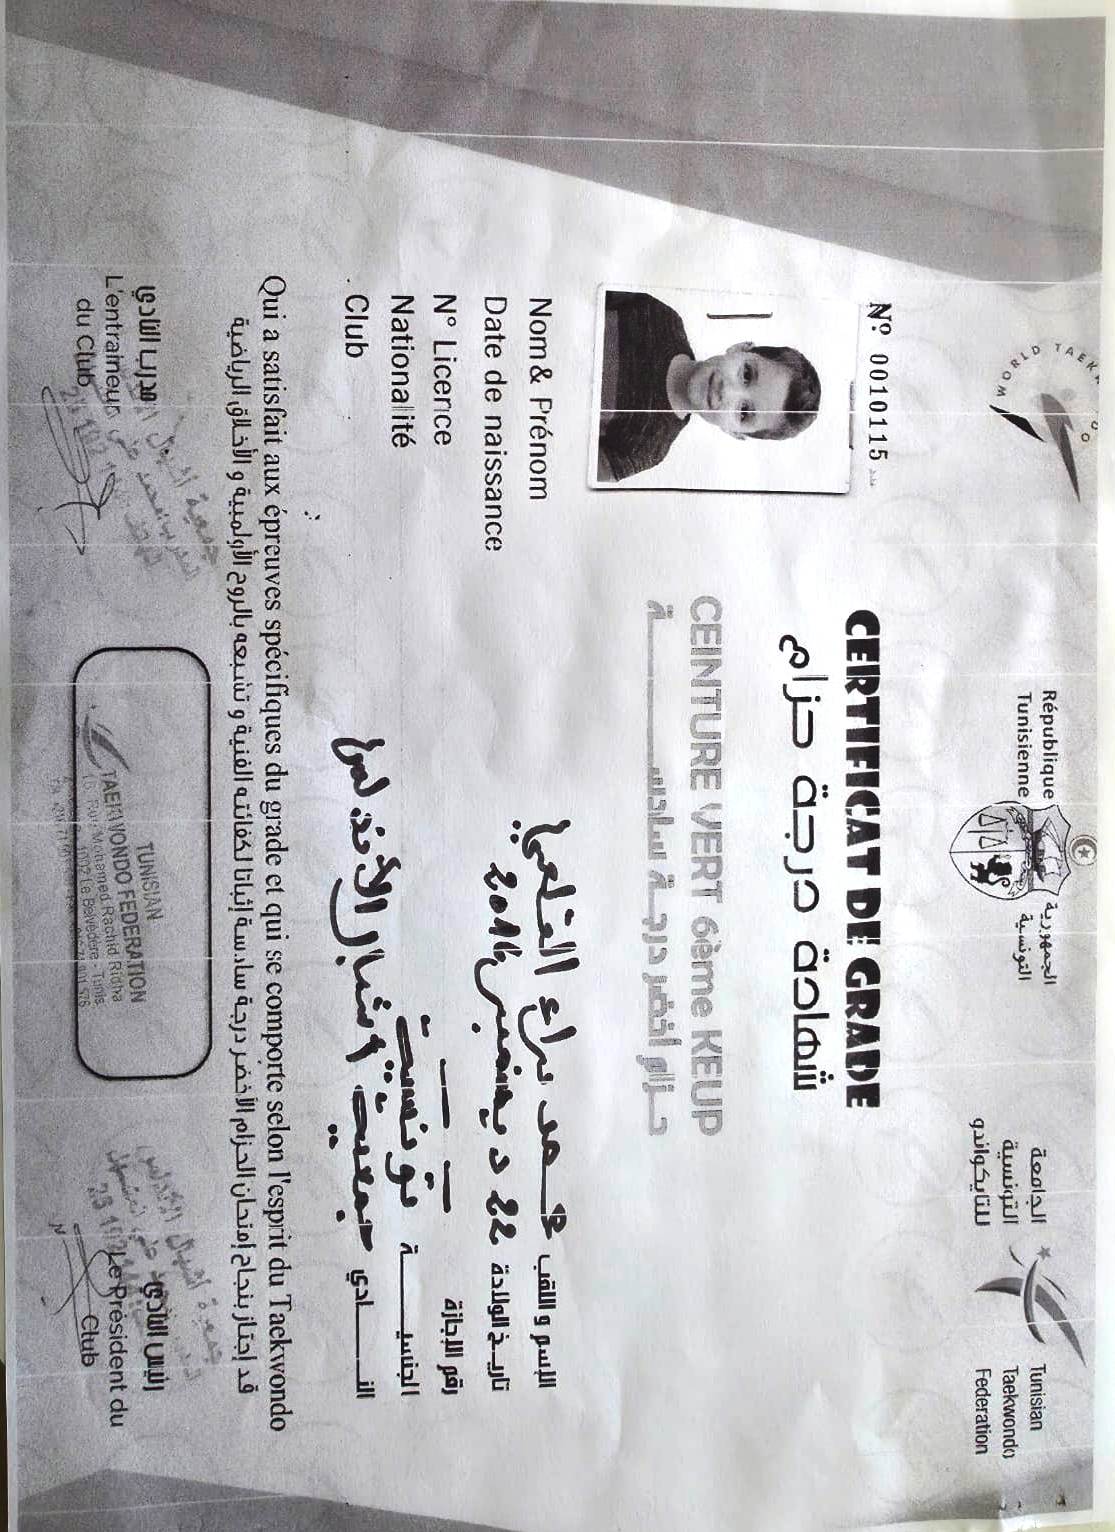 WORLD TAEK
République
Tunisienne
الجمهورية
التونسية
الجامعة
التونسية
للتايكواندو
Tunisian
Taekwondo
Federation
Nº 0010115 عدد
CERTIFICAT DE GRADE
شهادة درجة حزام
CEINTURE VERT 6ème KEUP
حزام أخضر درجة سادسة
Nom & Prénom محمد براء الإسم و اللقب
Date de naissance 22 ديسمبر تاريخ الولادة
N° Licence — — — رقم الإجازة
Nationalité تونسية الجنسية
Club جمعية أشبال الأندلس النادي
Qui a satisfait aux épreuves spécifiques du grade et qui se comporte selon l'esprit du Taekwondo
قد إجتاز بنجاح إمتحان الحزام الأخضر درجة سادسة إثباتا لكفائته الفنية و تشبعه بالروح الأولمبية و الأخلاق الرياضية
مدرب النادي
L'entraineur
du Club
TUNISIAN
TAEKWONDO FEDERATION
Rue Mohamed Rachid Ridha
1002 Le Belvédère - Tunis
رئيس النادي
Le Président du
Club